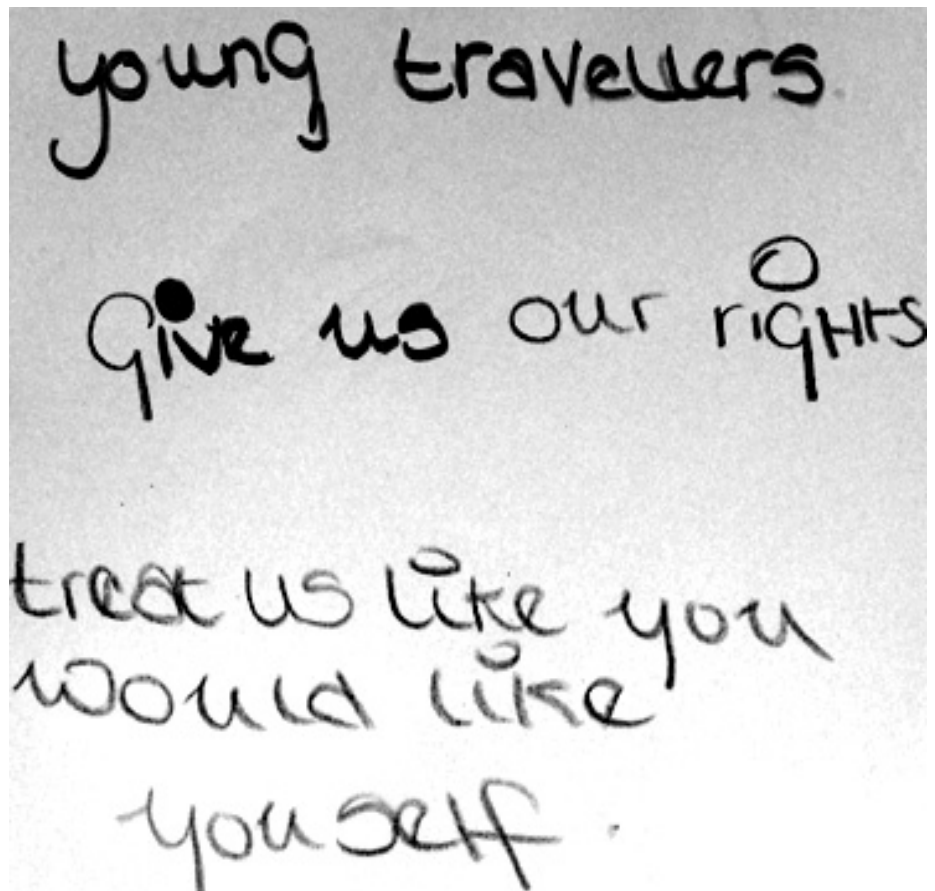 young travellers
Give us our rights
treat us like you
would like
youself.